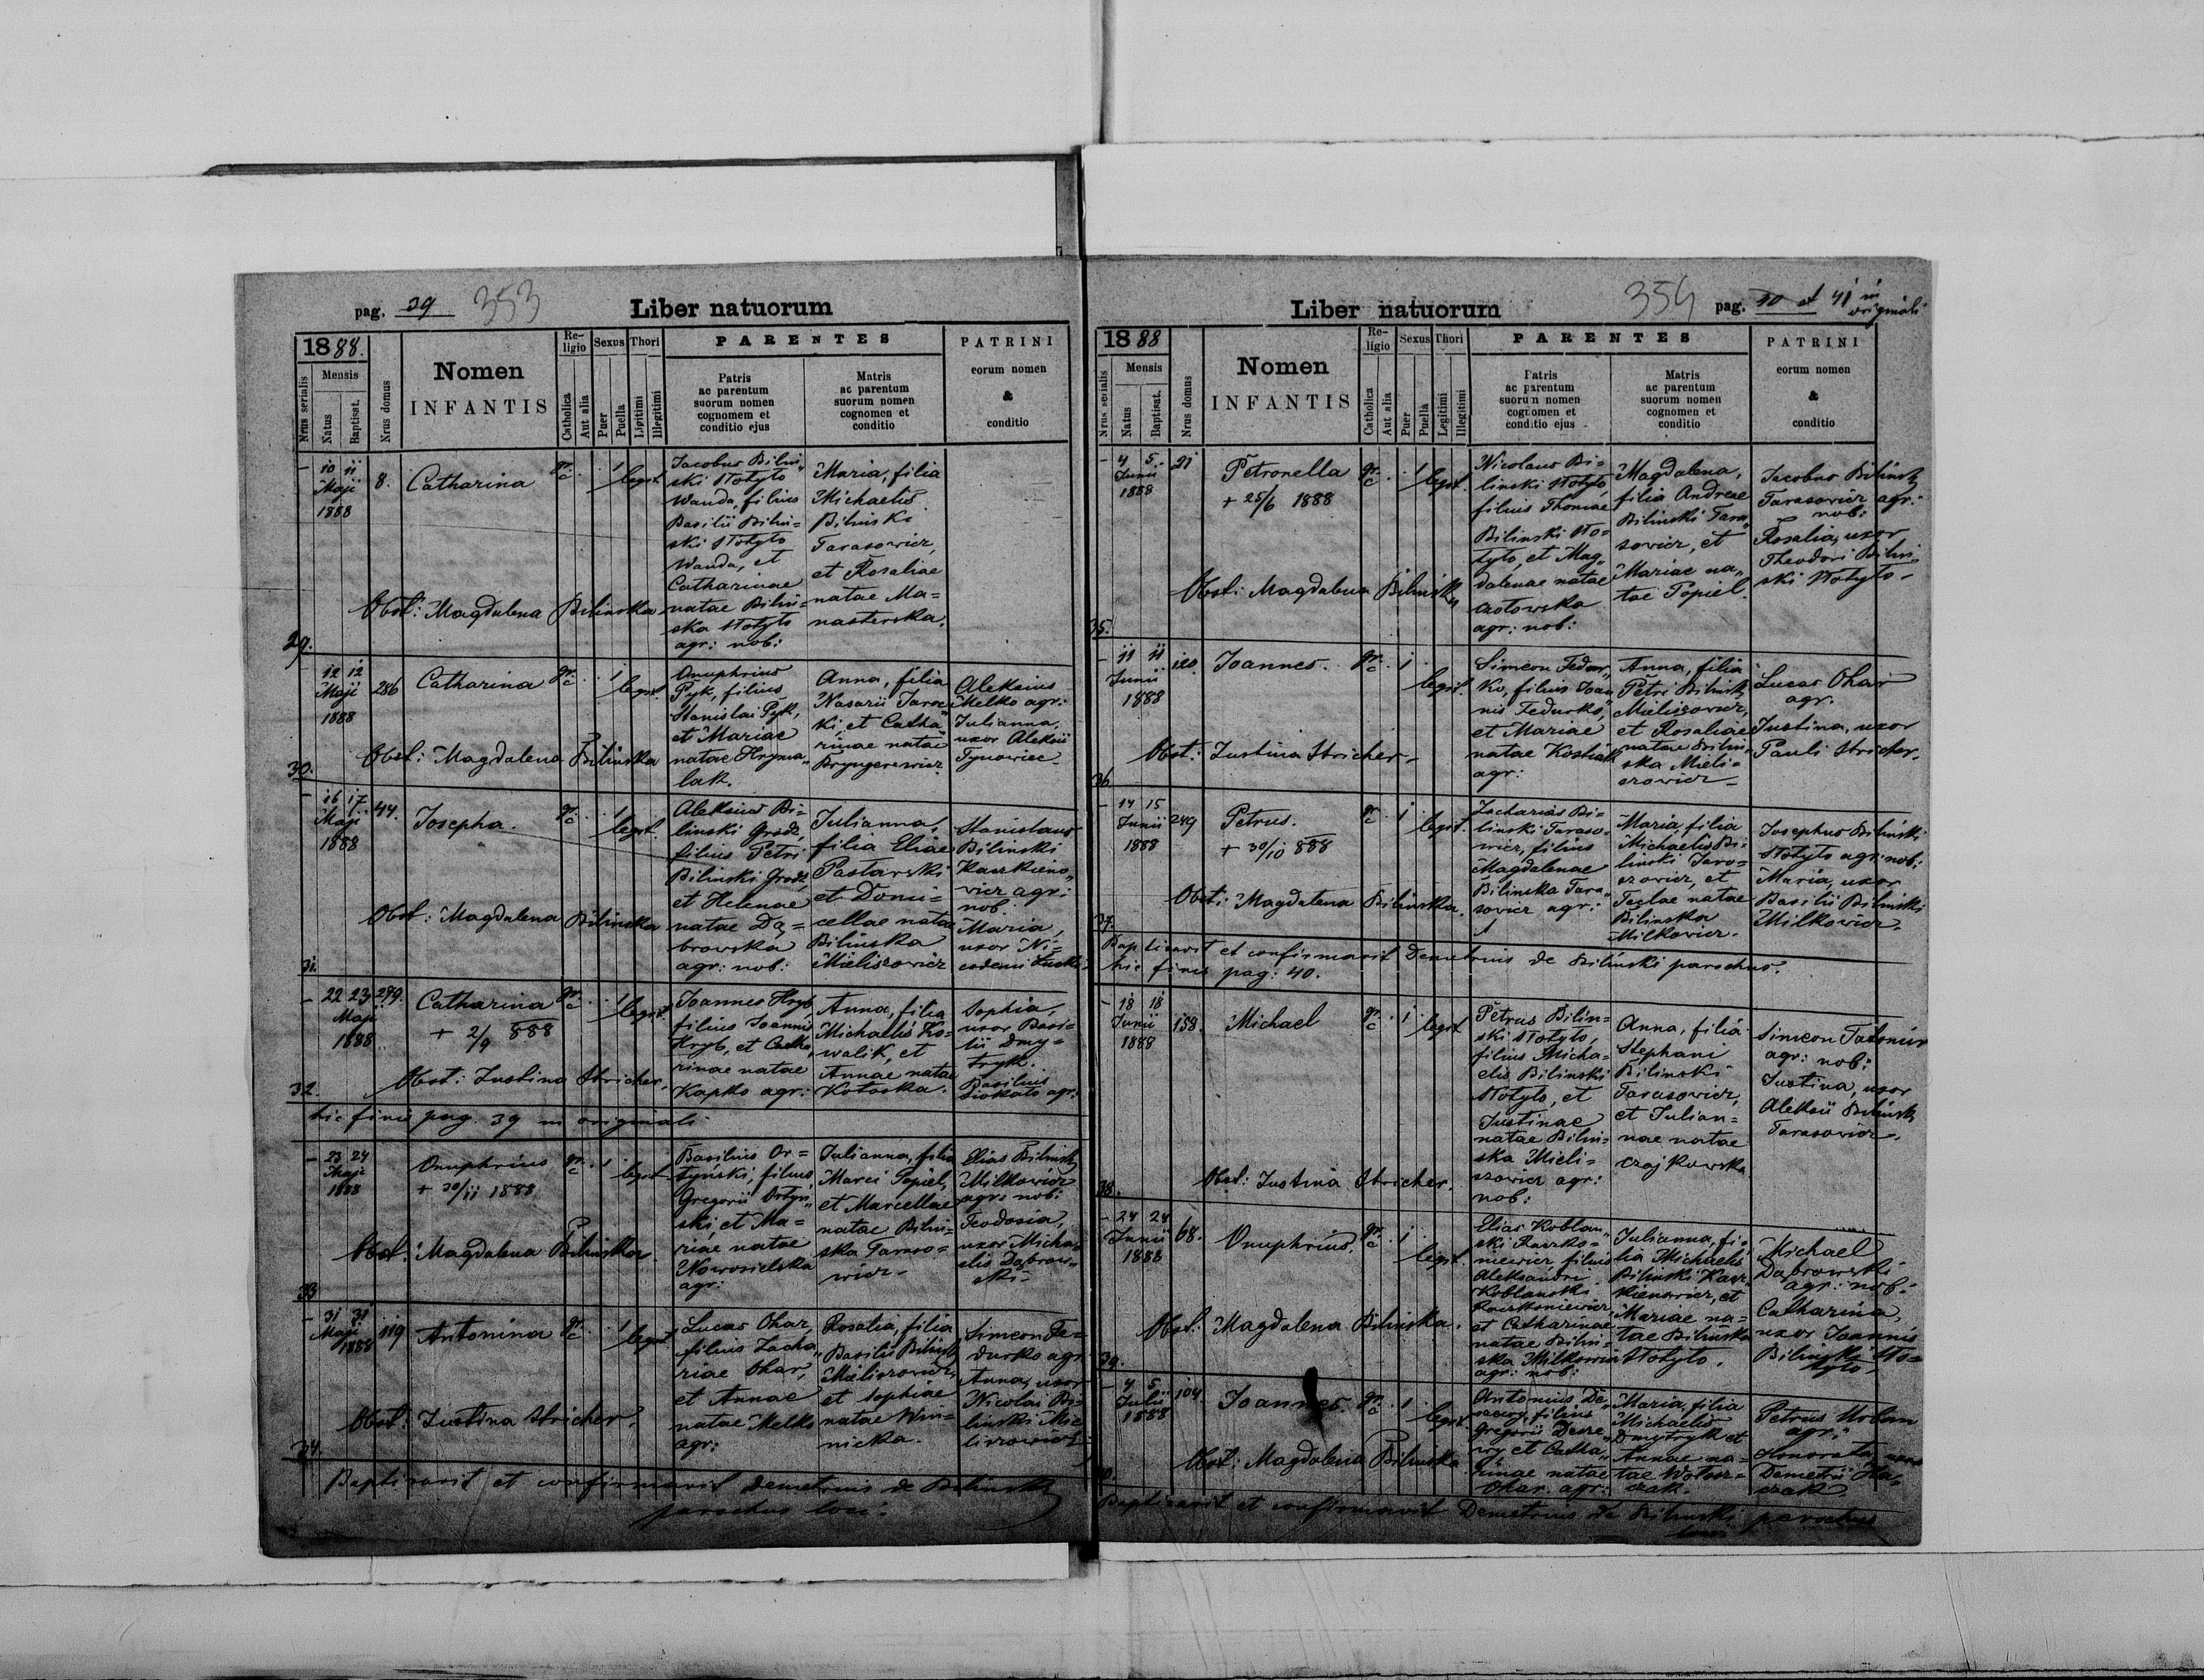 pag. 39 353 Liber natuorum
1888.
Nrus serialis
Mensis
Natus
Baptisat.
Nrus domus
Nomen
INFANTIS
Re-
ligio
Catholica
Aut alia
Sexus
Puer
Puella
Thori
Liptimi
Illegitimi
PARENTES
Patris
ac parentum
suorum nomen
cognomem et
conditio ejus
Matris
ac parentum
suorum nomen
cognomen et
conditio
PATRINI
eorum nomen
&
conditio
29.
10 11
Maji
1888
8.
Catharina
gr. c. 1 legit.
Jacobus Bilin„
ski Stotyto
Wanda, filius
Basilii Bilin=
ski Stotyto
Wanda, et
Catharinae
natae Bilin=
ska Stotyto
agr: nob:
Maria, filia
Michaelis
Bilinski
Tarasowicz,
et Rosaliae
natae Ma=
nasterska.
Obst: Magdalena Bilinska
30.
12 12
Maji
1888
286
Catharina
gr. c. 1 legit.
Onuphrius
Pyk, filius
Stanislai Pyk,
et Mariae
natae Hryma„
lak.
Anna, filia
Nasarii
et Catha„
rinae natae
Aleksius
Melko agr:
Julianna,
uxor Aleksii
Tynowiec
Obst: Magdalena Bilinska
31.
16 17
Maji
1888
44.
Josepha.
gr. c. 1 legit.
Aleksius Bi=
linski Grodz,
filius Petri
Bilinski Grodz,
et Helenae
natae Dą=
browska
agr: nob:
Julianna,
filia Eliae
Pastarski
et Domi=
cellae natae
Bilinska
Mieliszowicz
Stanislaus
Bilinski
Kaszkieno„
wicz agr:
nob.
Maria,
uxor Ni=
codemi
Obst: Magdalena Bilinska
32.
22 23
Maji
1888
279.
Catharina
+ 2/9 888
gr. c. 1 legit.
Joannes Hryb,
filius Joannis
Hryb, et Catha„
rinae natae
Kapko agr:
Anna, filia
Michaelis Ko=
walik, et
Annae natae
Kotoska.
Sophia,
uxor Basi=
lii Dmy=
tryk.
Basilius
agr:
Obst: Justina Stricher.
hic finis pag. 39 in originali
33
23 24
Maji
1888
Onuphrius
+ 30/11 1888
gr. c. 1 legit.
Basilius Or=
tyński, filius
Gregorii Ortyń„
ski, et Ma=
riae natae
Nowosielska
agr:
Julianna, filia
Marci Popiel,
et Marcellae
natae Bilin=
ska Taraso=
wicz
Elias Bilinski
Milkowicz
agr: nob:
Teodosia,
uxor Micha„
elis Dąbrow„
ski
Obst: Magdalena Bilinska
34.
31 31
Maji
1888
119
Antonina
gr. c. 1 legit.
Lucas Ohar
filius Zacha„
riae Ohar,
et Annae
natae Melko
agr:
Rosalia, filia
Basilii Bilinski
Mieliszowicz,
et Sophiae
natae Win=
nicka.
Simeon Fe=
durko agr.
Anna, uxor
Nicolai Bi=
linski Mie
liszowicz
Obst: Justina Stricher.
Baptisavit et confirmavit Demetrius de Bilinski
parochus loci.
Liber natuorum 354 pag. 40 et 41 in
originali
1888
Nrus serialis
Mensis
Natus
Baptisat.
Nrus domus
Nomen
INFANTIS
Re-
ligio
Catholica
Aut alia
Sexus
Puer
Puella
Thori
Legitimi
Illegitimi
PARENTES
Patris
ac parentum
suorum nomen
cognomen et
conditio ejus
Matris
ac parentum
suorum nomen
cognomen et
conditio
PATRINI
eorum nomen
&
conditio
35.
4 5
Junii
1888
21
Petronella
+ 25/6 1888
gr. c. 1 legit.
Nicolaus Bi=
linski Stotyto,
filius Thomae
Bilinski Sto=
tyto, et Mag„
dalenae natae
Czołowska
agr: nob:
Magdalena,
filia Andreae
Bilinski Tara„
sowicz, et
Mariae na„
tae Popiel.
Jacobus Bilinski
Tarasowicz agr:
nob:
Rosalia, uxor
Theodori Bilin
ski Stotyto
Obst: Magdalena Bilinska
36
11 11
Junii
1888
120
Joannes.
gr. c. 1 legit.
Simeon Fedur„
ko, filius Joan„
nis Fedurko,
et Mariae
natae Kostiak
agr:
Anna, filia
Petri Bilinski
Mieliszowicz,
et Rosaliae
natae Bilin„
ska Mieli=
szowicz
Lucas Ohar
agr.
Justina, uxor
Pauli Stricher.
Obst: Justina Stricher.
37.
14 15
Junii
1888
249
Petrus.
+ 30/10 888
gr. c. 1 legit.
Zacharias Bi=
linski Taraso„
wicz, filius
Magdalenae
Bilinska Tara„
sowicz agr:
Maria, filia
Michaelis Bi=
linski Taro=
szowicz, et
Teclae natae
Bilinska
Milkowicz.
Josephus Bilinski
Stotyto agr: nob:
Maria, uxor
Basilii Bilinski
Milkowicz.
Obst: Magdalena Bilinska.
Baptisavit et confirmavit Demetrius de Bilinski parochus.
hic finis pag: 40.
38.
18 18
Junii
1888
158.
Michael
gr. c. 1 legit
Petrus Bilin=
ski Stotyto,
filius Micha=
elis Bilinski
Stotyto, et
Justinae
natae Bilin=
ska Mieli=
szowicz agr:
nob:
Anna, filia
Stephani
Bilinski
Tarasowicz,
et Julian=
nae natae
Czajkowska
Simeon Tatomir
agr: nob:
Justina, uxor
Aleksii Bilinski
Tarasowicz.
Obst: Justina Stricher.
39.
24 24
Junii
1888
68.
Onuphrius.
gr. c. 1 legit.
Elias Koblan„
ski Raszko=
niewicz filius
Aleksandri
Koblanski
Raszkoniewicz
et Catharinae
natae Bilin=
ska Milkowicz
agr: nob:
Julianna, fi=
lia Michaelis
Bilinski Kasz„
kienowicz, et
Mariae na=
tae Bilinska
Stotyto.
Michael
Dąbrowski
agr: nob:
Catharina,
uxor Joannis
Bilinski Sto=
tyto
Obst: Magdalena Bilinska.
40.
4 5
Julii
1888
104
Joannes.
gr. c. 1 legit.
Antonius De„
filius
Gregorii
et Catha„
rinae natae
Ohar. agr:
Maria, filia
Michaelis
Dmytryk et
Annae na=
tae Wołosz=
czak.
Petrus Urban
agr:
Honorata, uxor
Demetrii
Obst: Magdalena Bilinska
Baptisavit et confirmavit Demetrius de Bilinski parochus
loci